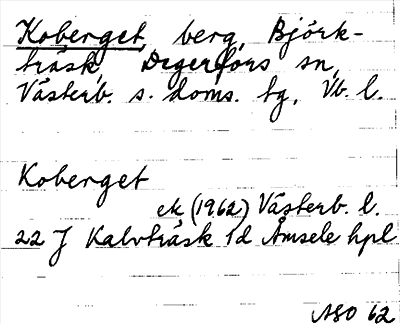 Koberget, berg, Björk-
träsk, Degerfors sn,
Västerb. s. doms. tg, Vb. l.
Koberget
ek (1962) Västerb. l.
22 J Kalvträsk 1d Åmsele hpl
ASO 62